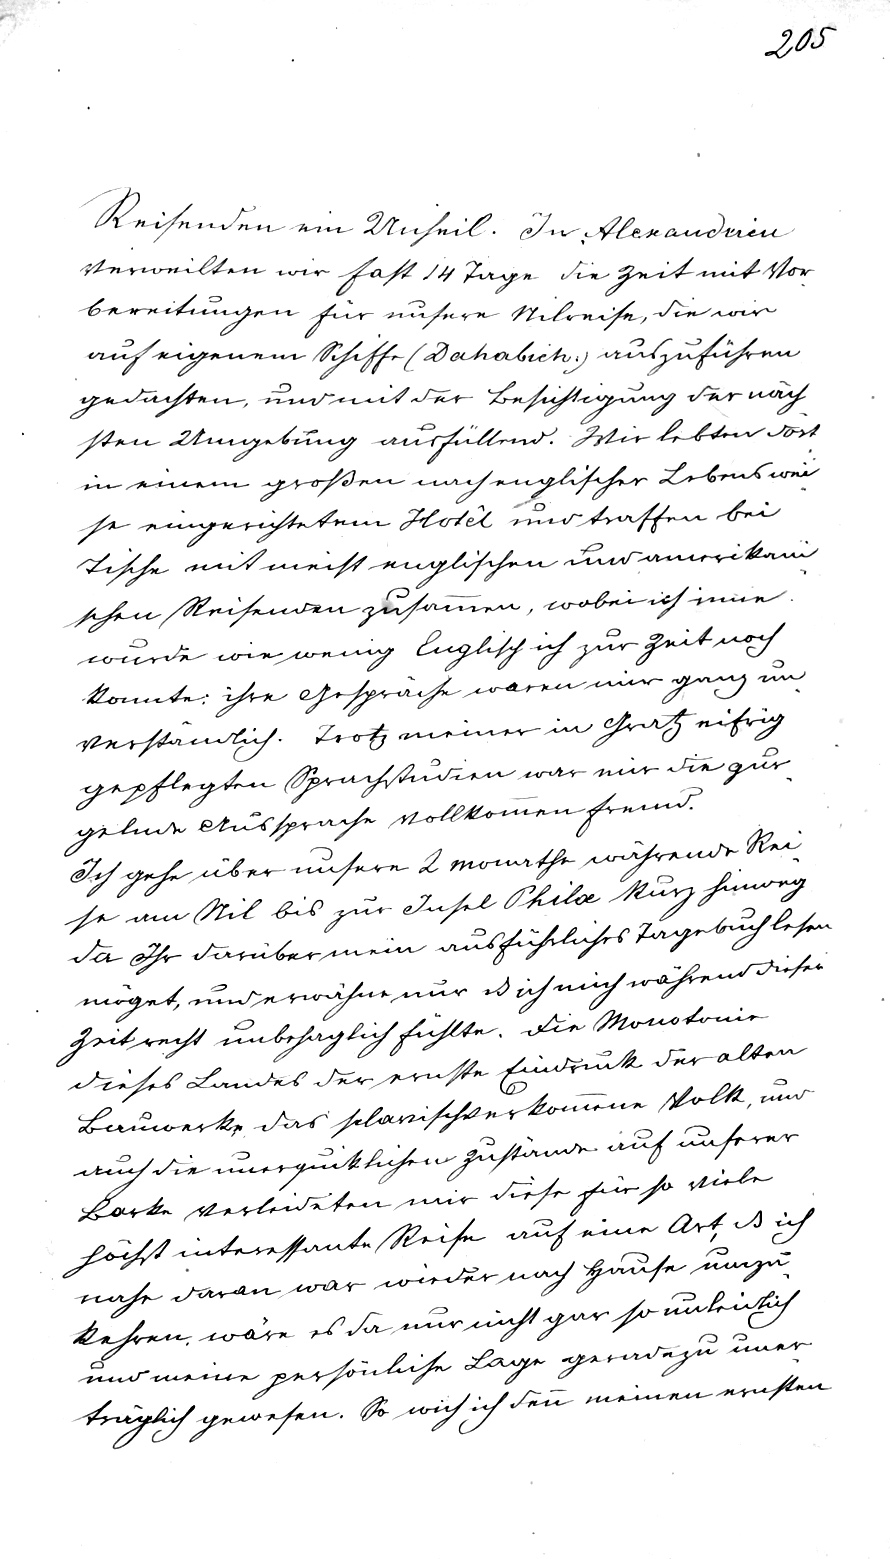 205
Reisenden ein Unheil. In Alexandrien
verweilten wir fast 14 Tage die Zeit mit Vor
bereitungen für unsere Nilreise, die wir
auf eigenem Schiffe (Dahabieh.) auszuführen
gedachten, und mit der Besichtigung der näch
sten Umgebung ausfüllend. Wir lebten dort
in einem großen nach englischer Lebenswei
se eingerichtetem Hotêl und traffen bei
Tische mit meist englischen und amerikani
schen Reisenden zusam̅en, wobei ich inne
wurde wie wenig Englisch ich zur Zeit noch
konnte: ihre Gespräche waren mir ganz un
verständlich. Trotz meiner in Gratz eifrig
gepflegten Sprachstudien war mir die gur
gelnde Aussprache vollkom̅en fremd.
Ich gehe über unsere 2 monathe währende Rei
se am Nil bis zur Insel Philæ kurz hinweg
da Ihr darüber mein ausführliches Tagebuch lesen
möget, und erwähne nur ich mich während dieser
Zeit recht unbehaglich fühlte. Die Monotonie
dieses Landes der ernste Eindruck der alten
Bauwerke, das sclavischverkom̅ene Volk, und
auch die unerquiklichen Zustände auf unserer
Barke verleideten mir diese für so viele
höchst interessante Reise auf eine Art, ich
nahe daran war wieder nach Hause umzu
kehren, wäre es da nur nicht gar so unleidlich
und meine persönliche Lage geradezu uner
träglich gewesen. So wich ich den̅ meinen ernsten